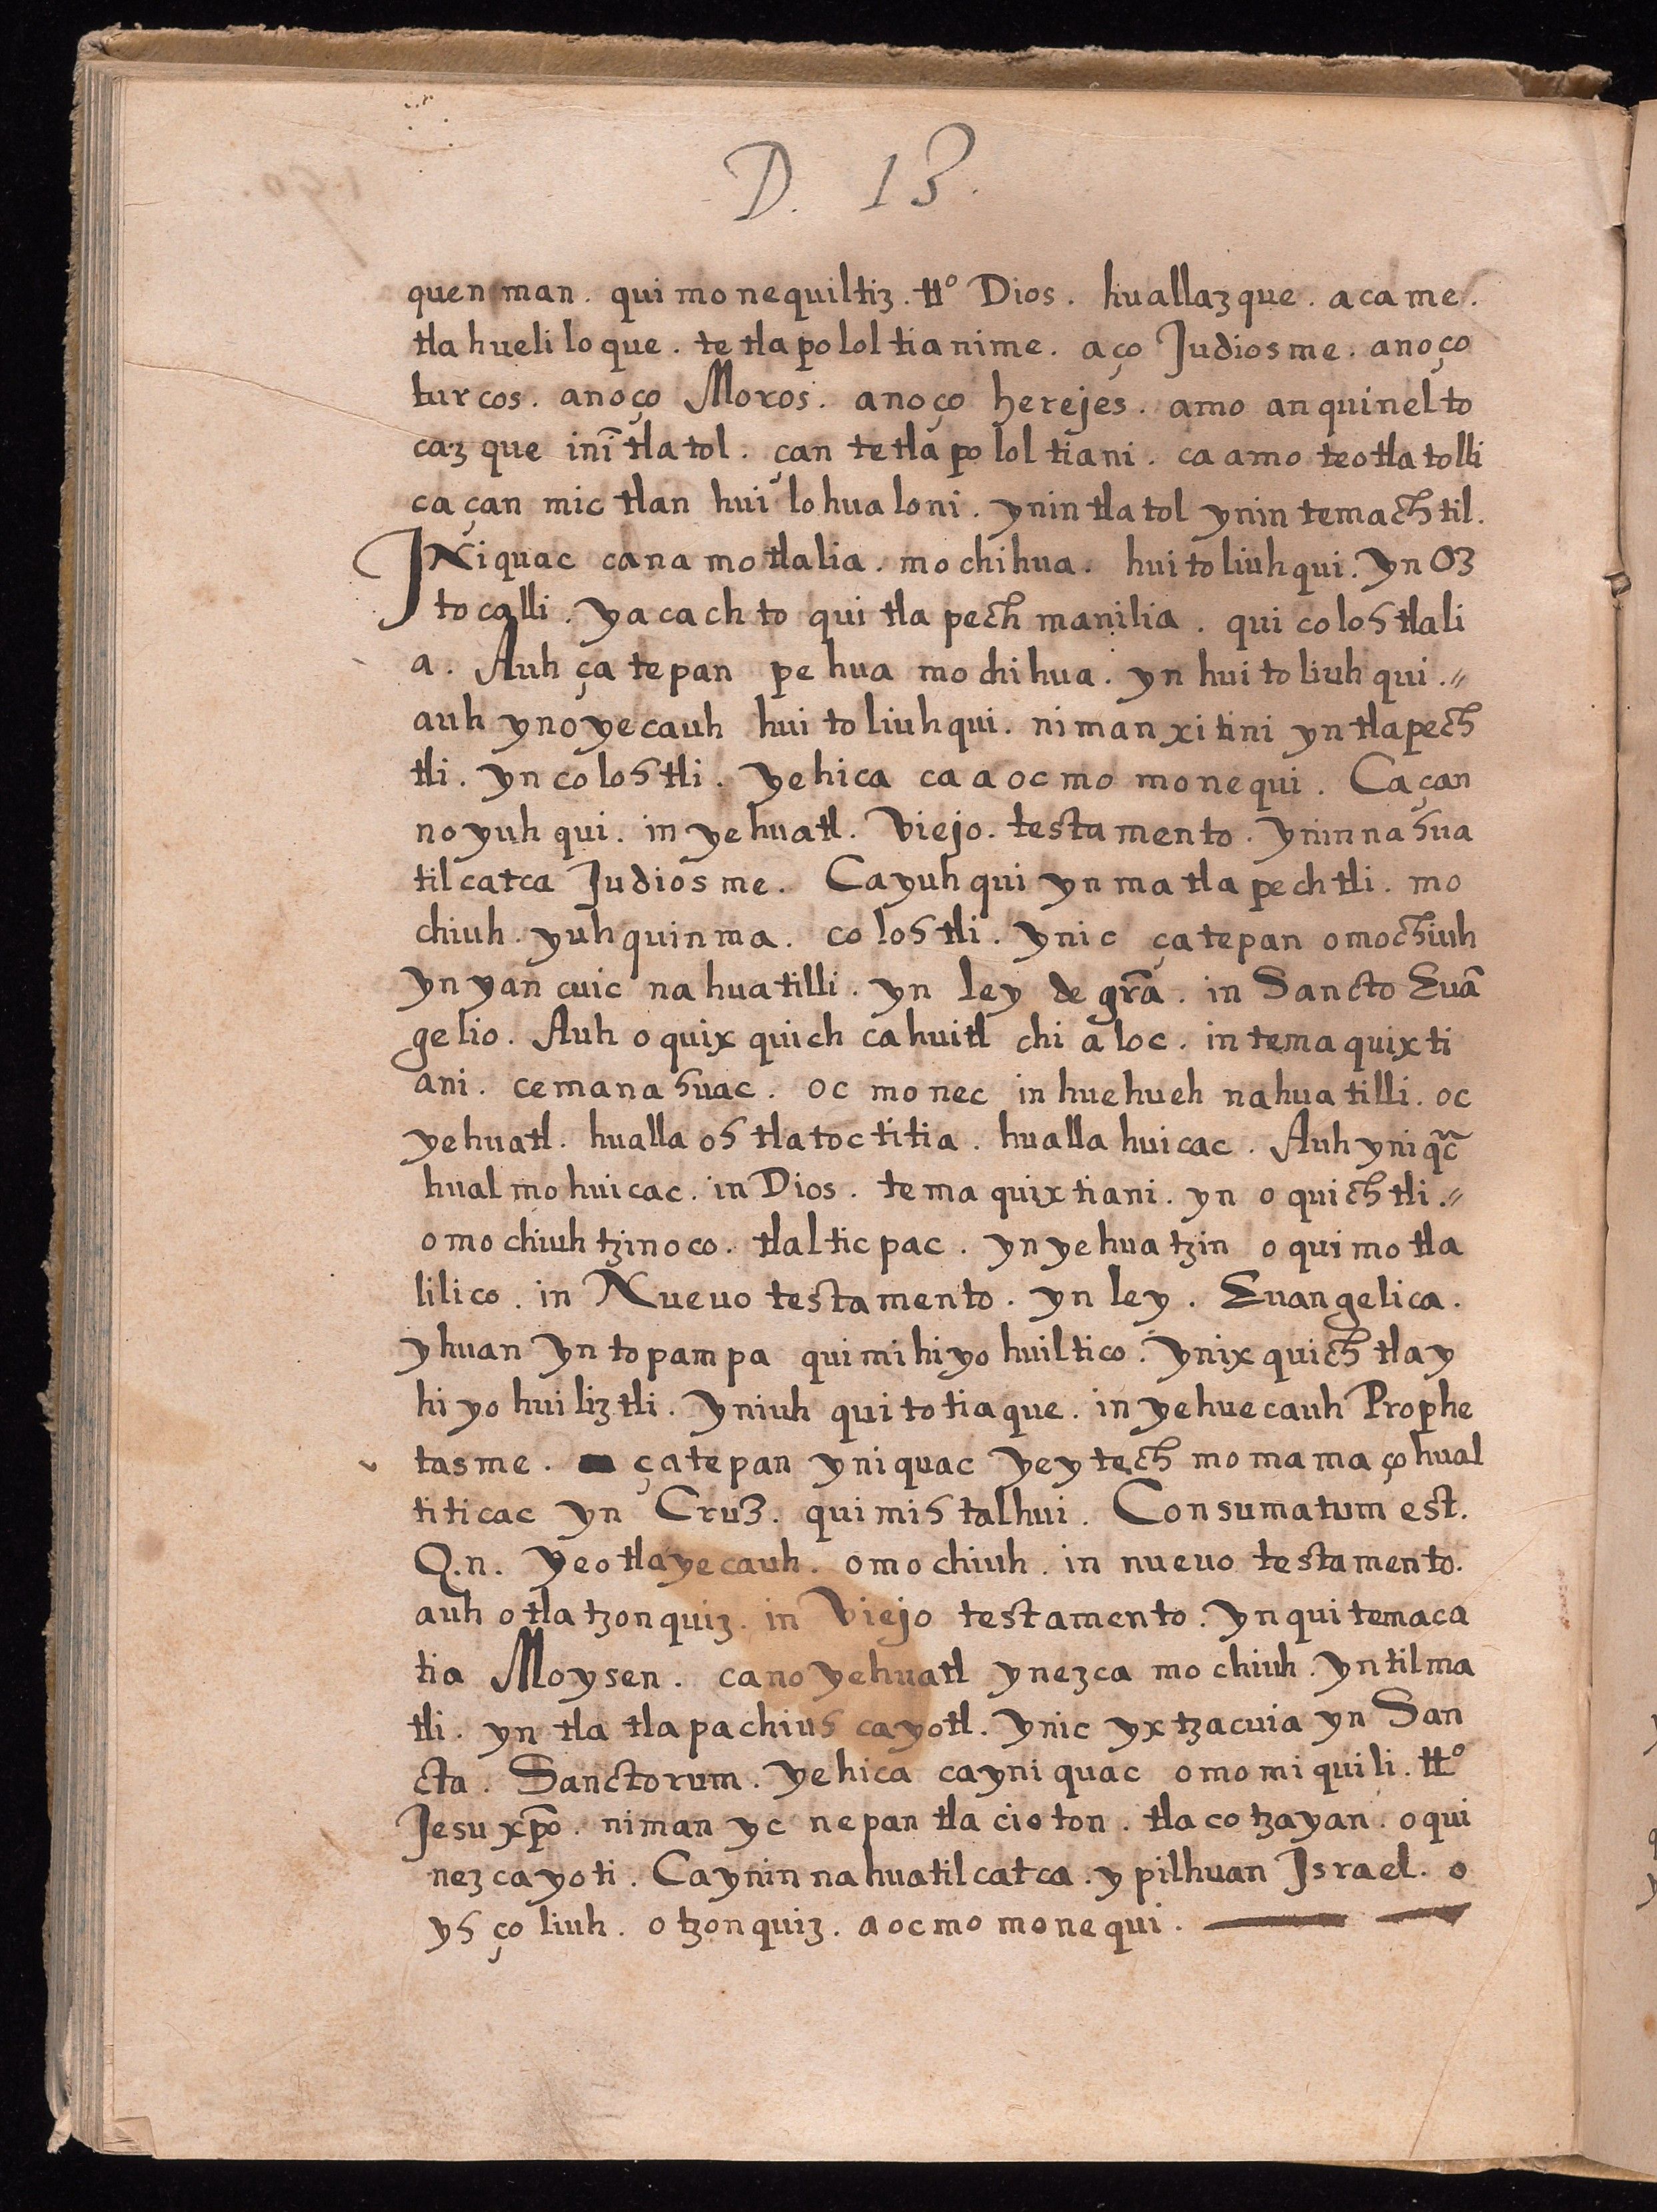 D. 13.
quen man. qui mo nequiltiz. tt° Dios. huallazque. a ca me.
tla hueli lo que. te tla polol tia nime. aço Judios me. anoço
turcos. anoço Moros. anoço herejes. amo an quinel to
caz que inī tla tol. çan te tla po lol tiani. ca amo teo tla tolli
ca çan mic tlan hui lo hua loni. ynin tla tol ynin temachtil.
INiquac cana mo tlalia. mo chihua. hui to liuh qui. Yn Oz
to calli. ya ca ch to qui tla pech manilia. qui co los tlali
a. Auh ça te pan pe hua mo chi hua. yn hui to liuh qui. //
auh yno ye cauh hui to liuh qui. ni man xi tini yn tla pech
tli. yn co los tli. ye hica ca a oc mo mo ne qui. Ca çan
no yuh qui. in ye huatl. Viejo. testamento. ynin na hua
til catca Judios me. Ca yuh qui yn ma tla pech tli. mo
chiuh. yuh quin ma. co los tli. ynic ça te pan omochiuh
yn yan cuic na hua tilli. yn ley de grā. in Sancto Euā
gelio. Auh o quix quich ca huitl chi a loc. in tema quix ti
ani. cemana huac. oc mo nec in hue hueh nahua tilli. oc
ye huatl. hualla oh tla toc ti tia. hualla hui cac. Auh yni qc̄
hual mo hui cac. in Dios. te ma quix tiani. yn o quich tli. //
o mo chiuh tzino co. tlal tic pac. yn ye hua tzin o qui mo tla
lili co. in Nueuo testamento. yn ley. Euangelica.
y huan yn to pam pa qui mi hi yo huil ti co. ynix quich tla y
hi yo hui liz tli. yniuh qui to tia que. in ye hue cauh Prophe
tas me. ça te pan yni quac ye y tech mo ma ma ço hual
ti ti cac yn Cruz. qui mih talhui. Consumatum est.
Q.n. ye o tla ye cauh. o mo chiuh. in nueuo testamento.
auh o tla tzon quiz. in Viejo testamento. yn qui temaca
tia Moysen. ca no ye huatl y nezca mo chiuh. yn tilma
tli. yn tla tla pa chiuh ca yotl. ynic yx tzacuia yn San
cta. Sanctorum. ye hica ca yni quac o mo mi qui li. tt°
Jesu xp̄o. niman yc ne pan tla cio ton. tla co tzayan. o qui
nez ca yo ti. Ca ynin na hua til catca. y pilhuan Israel. o
yh ço liuh. o tzon quiz. a oc mo mo ne qui.